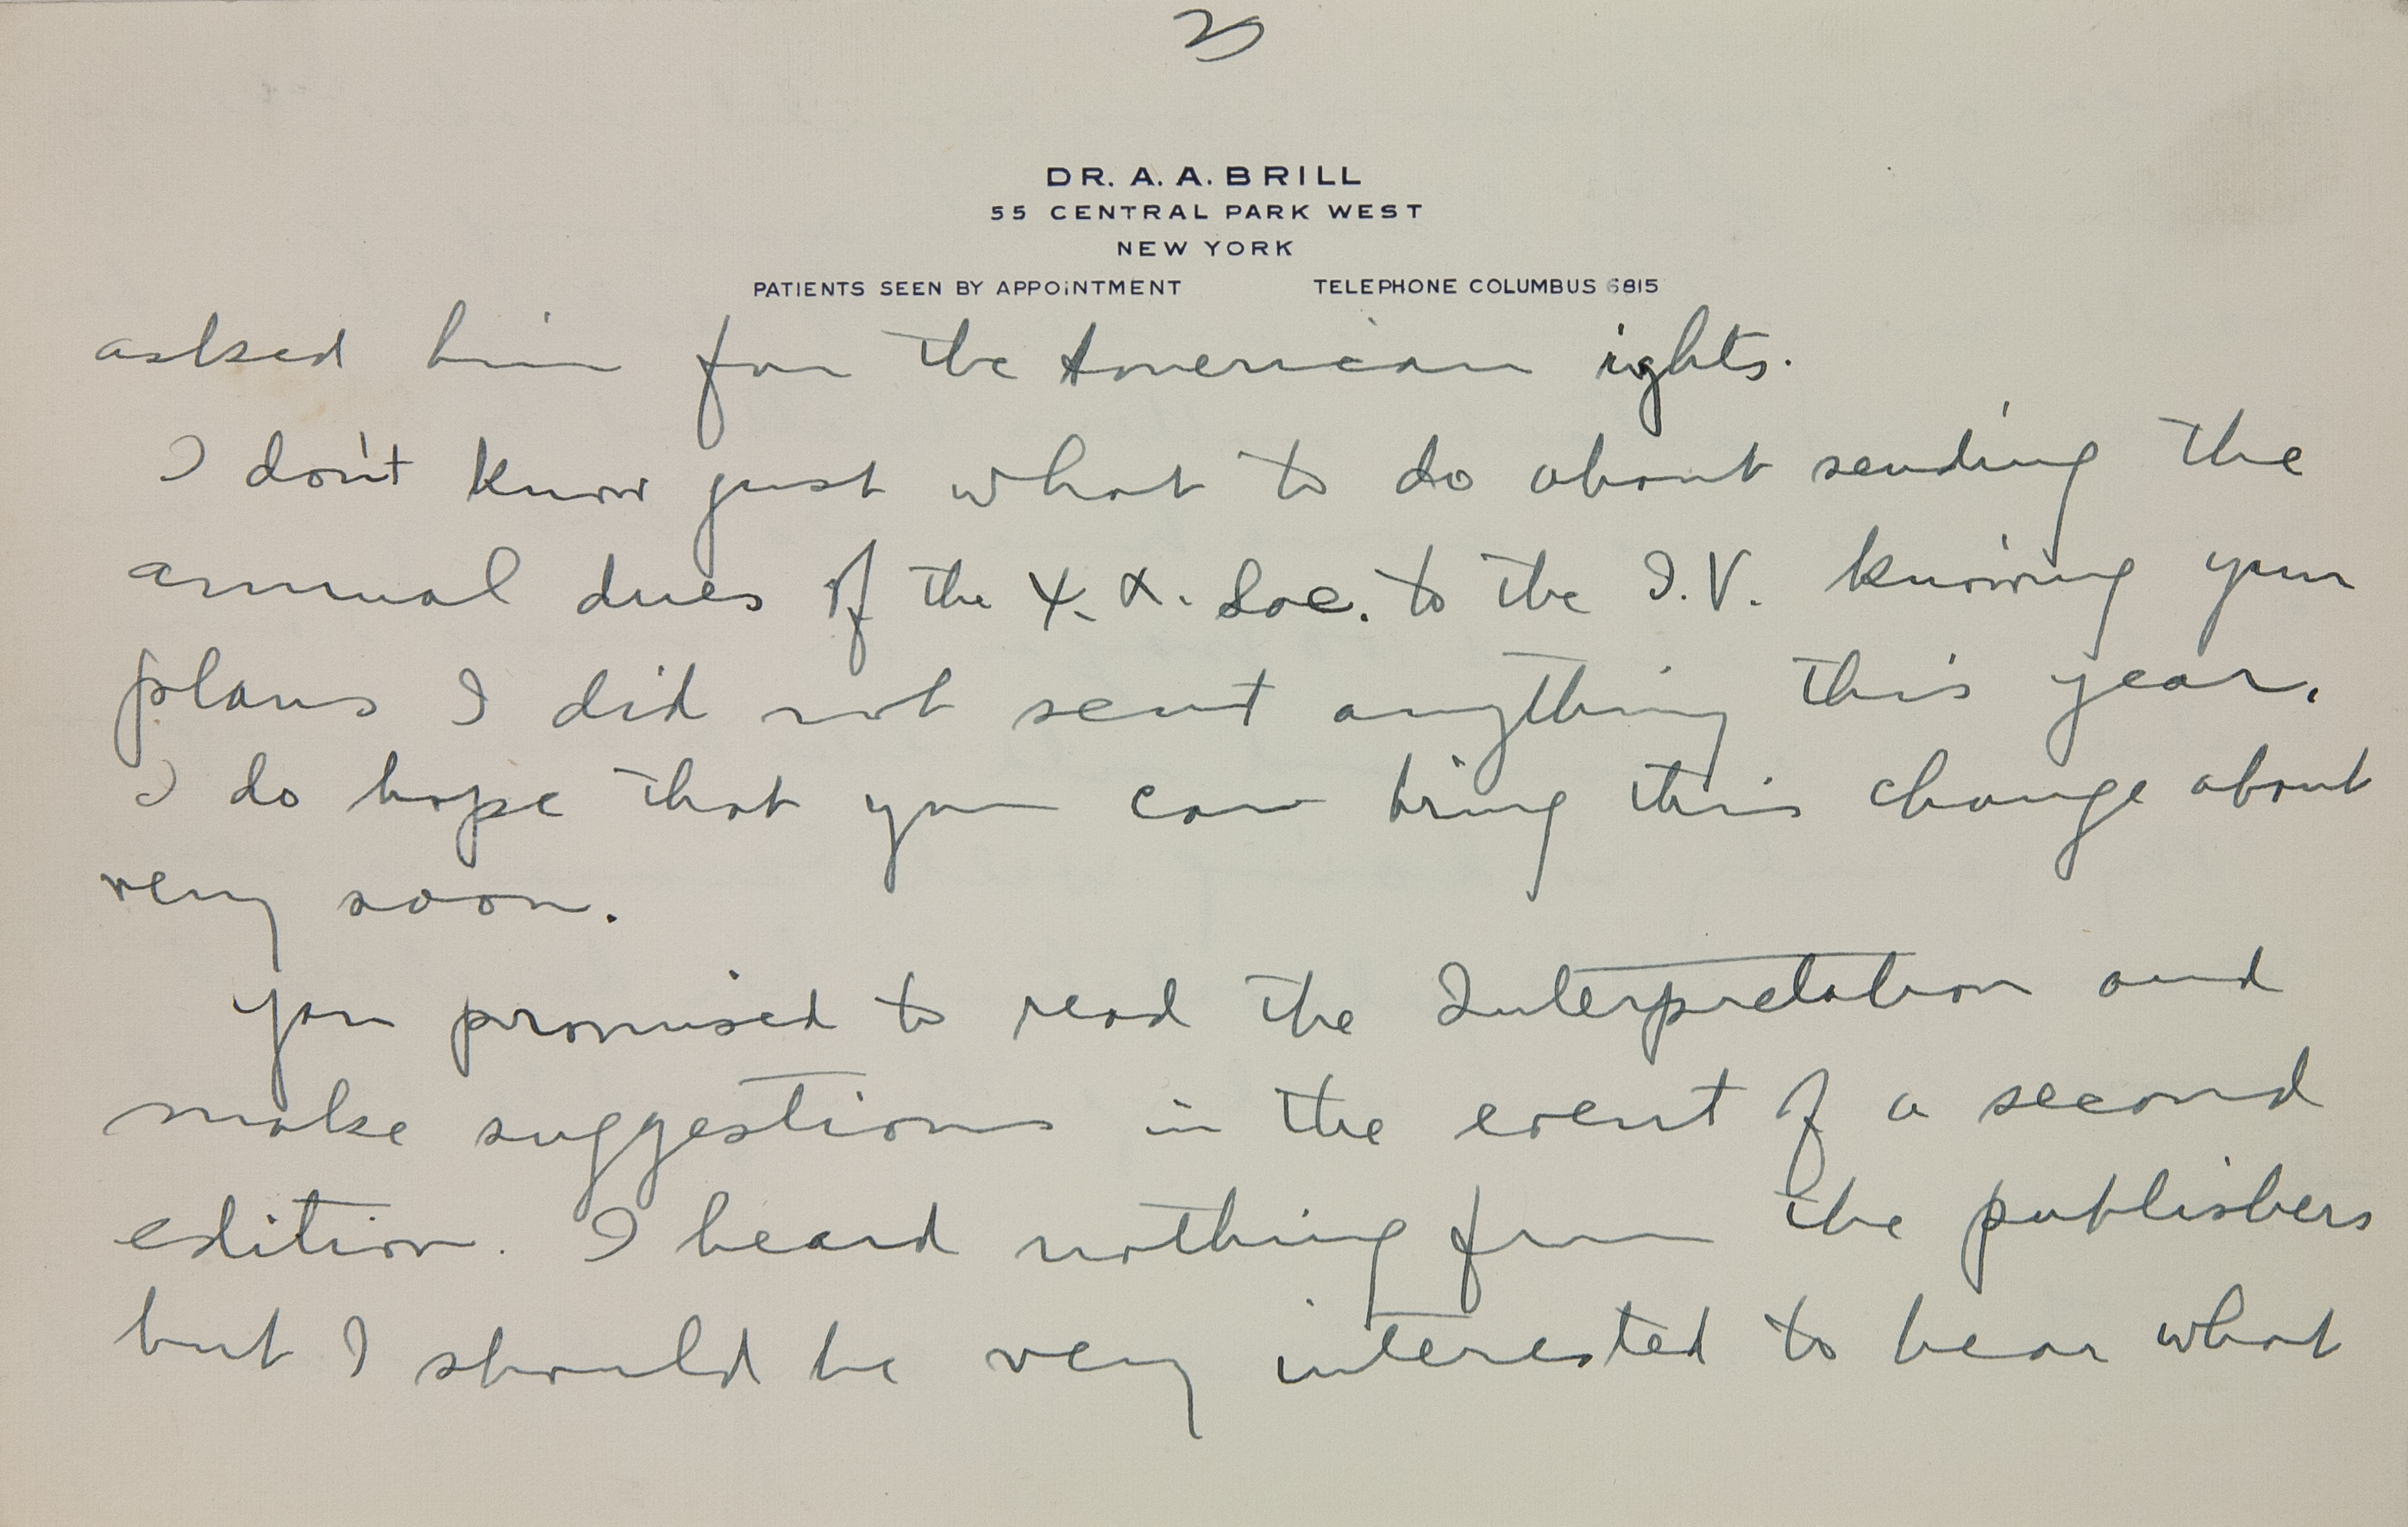 3
DR. A. A. BRILL
55 CENTRAL PARK WEST
NEW YORK
PATIENTS SEEN BY APPOINTMENT TELEPHONE COLUMBUS 6815
asked him for the American ights.
I don't know just what to do about sending the
annual dues of the Ψ. α. Soc. to the I.V. knowing your
plans I did not sent anything this year.
I do hope that you can bring this change about
very soon.
You promised to read the Interpretation and
make suggestions in the event of a second
edition. I heard nothing from the publishers
but I should be very interested to hear what